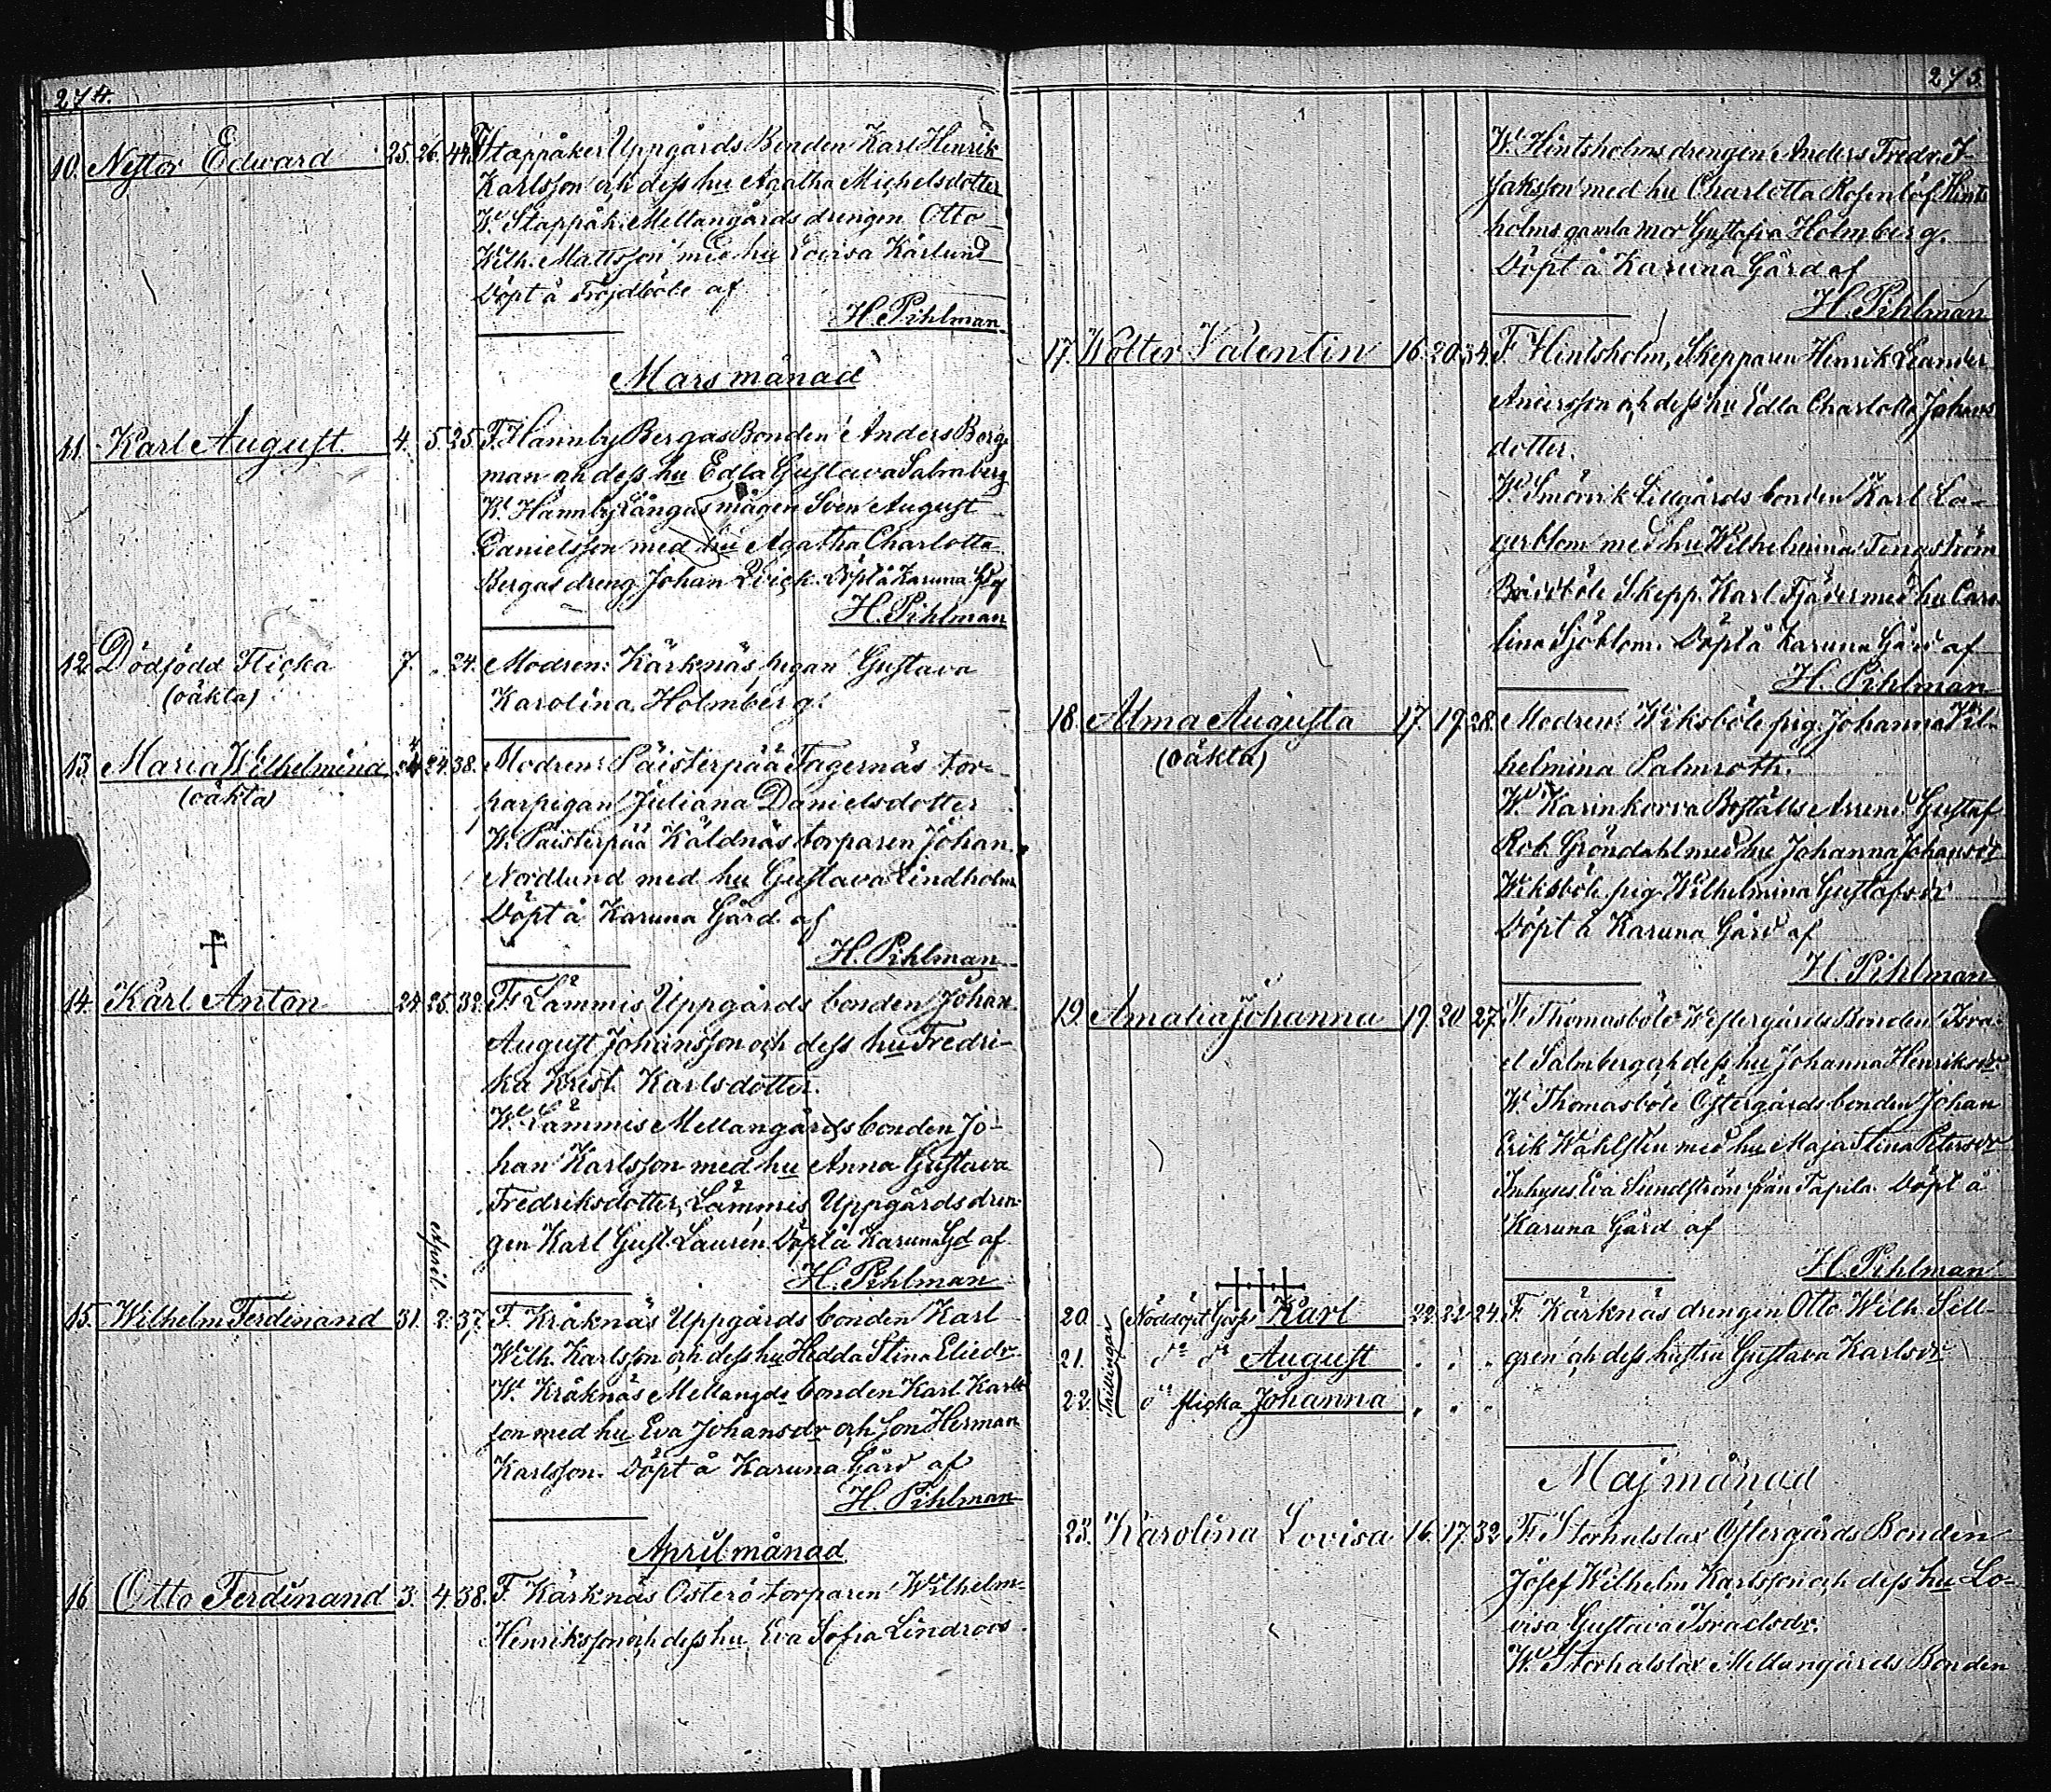 274.
10. Nestor Edward 25. 26. 44. F. Stappåker Uppgårds Bonden Karl Henrik
Karlsson och dess hu Agatha Michelsdotter
W. Stappåk. Mellangårds drengen Otto
Wilh. Mattsson med hu Lovisa Karlund
Döpt å Fröjdböle af
H. Pihlman
Mars månad
11. Karl August. 4. 5. 25. F. Hannby Bergas Bonden Anders Berg-
man och dess hu Edla Gustava Salmberg
W. Hannby Långas mågen Sven August
Danielsson med hu Agatha Charlotta
Bergas dreng Johan Qvick. Döpt å Karuna Gd af
H. Pihlman
12. Dödfödd Flicka 7. „ 24. Modren: Kärknäs pigan Gustava
(oäkta) Karolina Holmberg.
13. Maria Wilhelmina 24. 38. Modren: Päisterpää Fagernäs tor-
(oäkta) parpigan Juliana Danielsdotter
W. Päisterpää Käldnäs torparen Johan
Nordlund med hu Gustava Lindholm
Döpt å Karuna Gård af
H. Pihlman
14. Karl Anton 24. 25. 32. F. Lämmis Uppgårds bonden Johan
August Johansson och dess hu Fredri-
ka Krist. Karlsdotter.
W. Lämmis Mellangårds bonden Jo-
han Karlsson med hu Anna Gustava
Fredriksdotter, Lämmis Uppgårds dren-
gen Karl Gust. Laurén. Döpt å Karuna Gd af
H. Pihlman
April.
15. Wilhelm Ferdinand 31. 2. 37. F. Kråknäs Uppgårds bonden Karl
Wilh. Karlsson och dess hu Hedda Stina Eliedr.
W. Kråknäs Mellangds bonden Karl Karls-
son med hu Eva Johansdr och son Herman
Karlsson. Döpt å Karuna Gård af
H. Pihlman
April månad
16. Otto Ferdinand 3. 4. 38. F. Kärknäs Österö torparen Wilhelm
Henriksson och dess hu Eva Sofia Lindroos
275.
W. Hintsholms drengen Anders Fredr. I-
saksson med hu Charlotta Rosenlöf, Hints-
holms gamla mor Gustafva Holmberg.
Döpt å Karuna Gård af
H. Pihlman
17. Wolter Valentin 16. 20. 34. F. Hintsholm, Skepparen Henrik Leander
Andersson och dess hu Edla Charlotta Johans-
dotter.
W. Smörvik Lillgårds bonden Karl La-
gerblom med hu Wilhelmina Tengström
Skepp. Karl Fjäder med hu Caro-
lina Sjöblom. Döpt å Karuna Gård af
H. Pihlman
18. Alma Augusta 17. 19. 28. Modren: Wiksböle pig. Johanna Wil-
(oäkta) helmina Palmroth.
W. Karinkorva Boställs Arrend. Gustaf
Rob. Gröndahl med hu Johanna Johansdr
Wiksböle pig. Wilhelmina Gustafsdr
Döpt å Karuna Gård af
H. Pihlman
19. Amalia Johanna 19. 20. 27. F. Thomasböle Westergårds Bonden Isra-
el Salmberg och dess hu Johanna Henriksdr.
W. Thomasböle Östergårds bonden Johan
Erik Wahlsten med hu Maja Stina Petersdr
Inhyses Eva Sundström från Tapila. Döpt å
Karuna Gård af
H. Pihlman
Trillingar
20. Nöddöpt Goss. Karl 22. 22. 24. F. Kärknäs drengen Otto Wilh. Sill-
21. do do August „ „ „ gren och dess hustru Gustava Karlsdr
22. do flicka Johanna „ „ „
Maj månad
23. Karolina Lovisa 16. 17. 32. F. Storhalslax Östergårds Bonden
Josef Wilhelm Karlsson och dess hu Lo-
visa Gustava Israelsdr.
W. Storhalslax Mellangårds Bonden